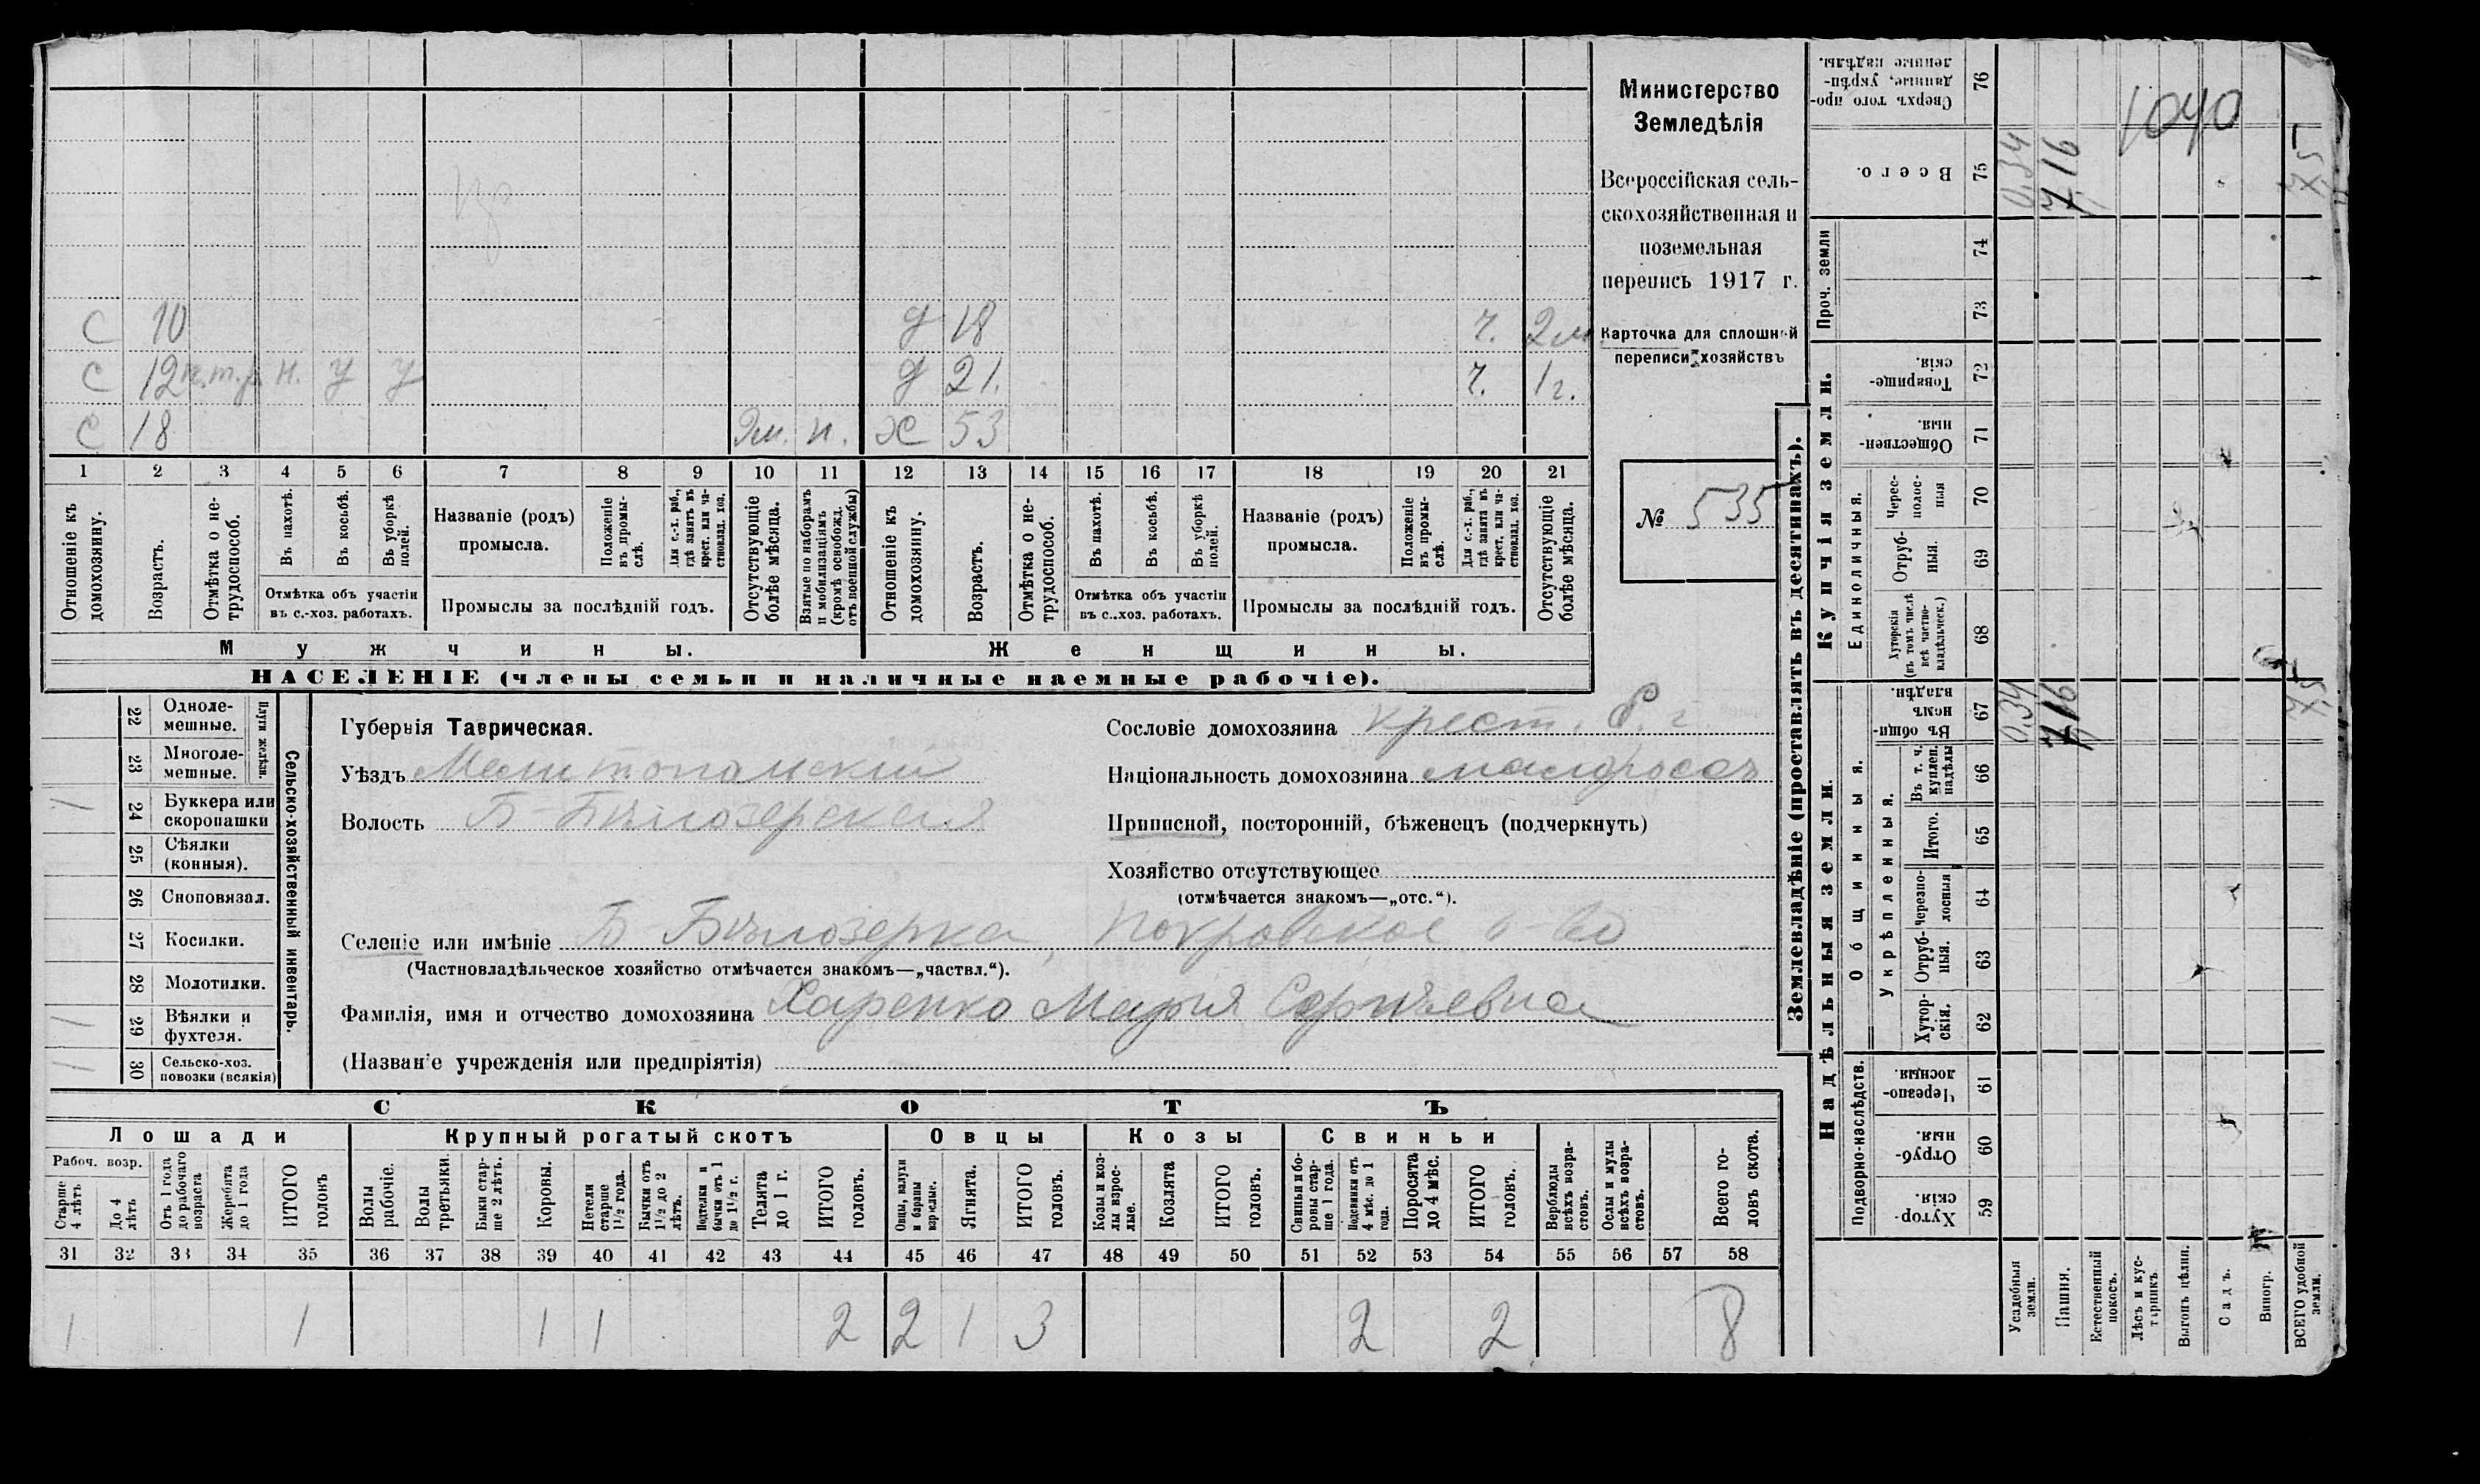 С 10 д 18 ч. 2м
С 12 н. у у д 21. ч. 1г.
С 18 9м. п. Х 53
1 2 3 4 5 6 7 8 9 10 11 12 13 14 15 16 17 18 19 20 21
Отношеніе къ домохозяину.
Возрастъ.
Отмѣтка о не-
трудоспособ.
Въ пахотѣ.
Въ косьбѣ.
Въ уборкѣ полей.
Отмѣтка объ участіи
въ с.-хоз. работахъ.
Названіе (родъ)
промысла.
Положеніе
въ промы-
слѣ.
Для с.-х. раб.,
гдѣ занятъ въ
крест. или ча-
стновлад. хоз.
Промыслы за послѣдній годъ.
Отсутствующіе
болѣе мѣсяца.
Взятые по наборамъ
и мобилизаціямъ
(кромѣ освобожд.
отъ военной службы)
Отношеніе къ
домохозяину.
Возрастъ.
Отмѣтка о не-
трудоспособ.
Въ пахотѣ.
Въ косьбѣ.
Въ уборкѣ
полей.
Отмѣтка объ участіи
въ с..хоз. работахъ.
Названіе (родъ)
промысла.
Положеніе
въ промы-
слѣ.
Для с.-х. раб.,
гдѣ занята въ
крест. или ча-
стновлад. хоз.
Промыслы за послѣдній годъ.
Отсутствующіе
болѣе мѣсяца.
Мужчины. Женщины.
НАСЕЛЕНІЕ (члены семьи и наличные наемные рабочіе).
Министерство
Земледѣлія
Всероссійская сель-
скохозяйственная и
поземельная
перепись 1917 г.
Карточка для сплошной
переписи хозяйствъ
№ 535
Сельско-хозяйственный инвентарь.
Плуги желѣзн.
22 Одноле-
мешные.
23 Многоле-
мешные.
1 24 Буккера или
скоропашки
25 Сѣялки
(конныя).
26 Сноповязал.
27 Косилки.
28 Молотилки.
1 29 Вѣялки и
фухтеля.
1 30 Сельско-хоз.
повозки (всякія)
Губернія Таврическая.
Уѣздъ Мелитопольскій
Волость Б-Бѣлозерская
Селеніе или имѣніе Б Бѣлозерка, Покровское о-во
(Частновладѣльческое хозяйство отмѣчается знакомъ—„частвл.“).
Фамилія, имя и отчество домохозяина Харенко Марія Сергѣевна
(Названіе учрежденія или предпріятія)
Сословіе домохозяина крест.
Національность домохозяина малороссъ
Приписной, посторонній, бѣженецъ (подчеркнуть)
Хозяйство отсутствующее
(отмѣчается знакомъ—„отс.“).
СКОТЪ
Лошади Крупный рогатый скотъ Овцы Козы Свиньи
Рабоч. возр.
Старше
4 лѣтъ
До 4
лѣтъ
Отъ 1 года
до рабочаго
возраста
Жеребята
до 1 года
ИТОГО
головъ
Волы
рабочіе.
Волы
третьяки.
Быки стар-
ше 2 лѣтъ.
Коровы.
Нетели
старше
1½ года.
Бычки отъ
1½ до 2
лѣтъ.
Подтелки и
бычки отъ 1
до 1½ г.
Телята
до 1 г.
ИТОГО
головъ.
Овцы, валухи
и бараны
взрослые.
Ягнята.
ИТОГО
головъ.
Козы и коз-
лы взрос-
лые.
Козлята
ИТОГО
головъ.
Свиньи и бо-
ровы стар-
ше 1 года.
Подсвинки отъ
4 мѣс. до 1
года.
Поросята
до 4 мѣс.
ИТОГО
головъ.
Верблюды
всѣхъ возра-
стовъ.
Ослы и мулы
всѣхъ возра-
стовъ.
Всего го-
ловъ скота.
31 32 33 34 35 36 37 38 39 40 41 42 43 44 45 46 47 48 49 50 51 52 53 54 55 56 57 58
1 1 1 1 2 2 1 3 2 2 8
Землевладѣніе (проставлять въ десятинахъ).
Надѣльныя земли. Купчія земли.
Проч. земли
Подворно-наслѣдств.
Общинныя.
Укрѣпленныя.
Единоличныя.
Сверхъ того про-
данные, укрѣп-
ленные надѣлы.
76
Всего.
75
74
73
Товарище-
скія.
72
Обществен-
ныя.
71
Черес-
полос-
ныя
70
Отруб-
ныя.
69
Хуторскія
(въ томъ числѣ
всѣ частно-
владѣльческ.)
68
Въ общин-
номъ
владѣн.
67
Въ т. ч.
куплен.
надѣлы
66
Итого.
65
Черезпо-
лосныя
64
Отруб-
ныя.
63
Хутор-
скія.
62
Черезпо-
лосныя.
61
Отруб-
ныя.
60
Хутор-
скія.
59
1040
0.34 7.16
0.34 7.16
Усадебныя
земли.
Пашня.
Естественный
покосъ.
Лѣсъ и кус-
тарникъ
Выгонъ цѣлин.
Садъ.
Виногр.
ВСЕГО удобной
земли.